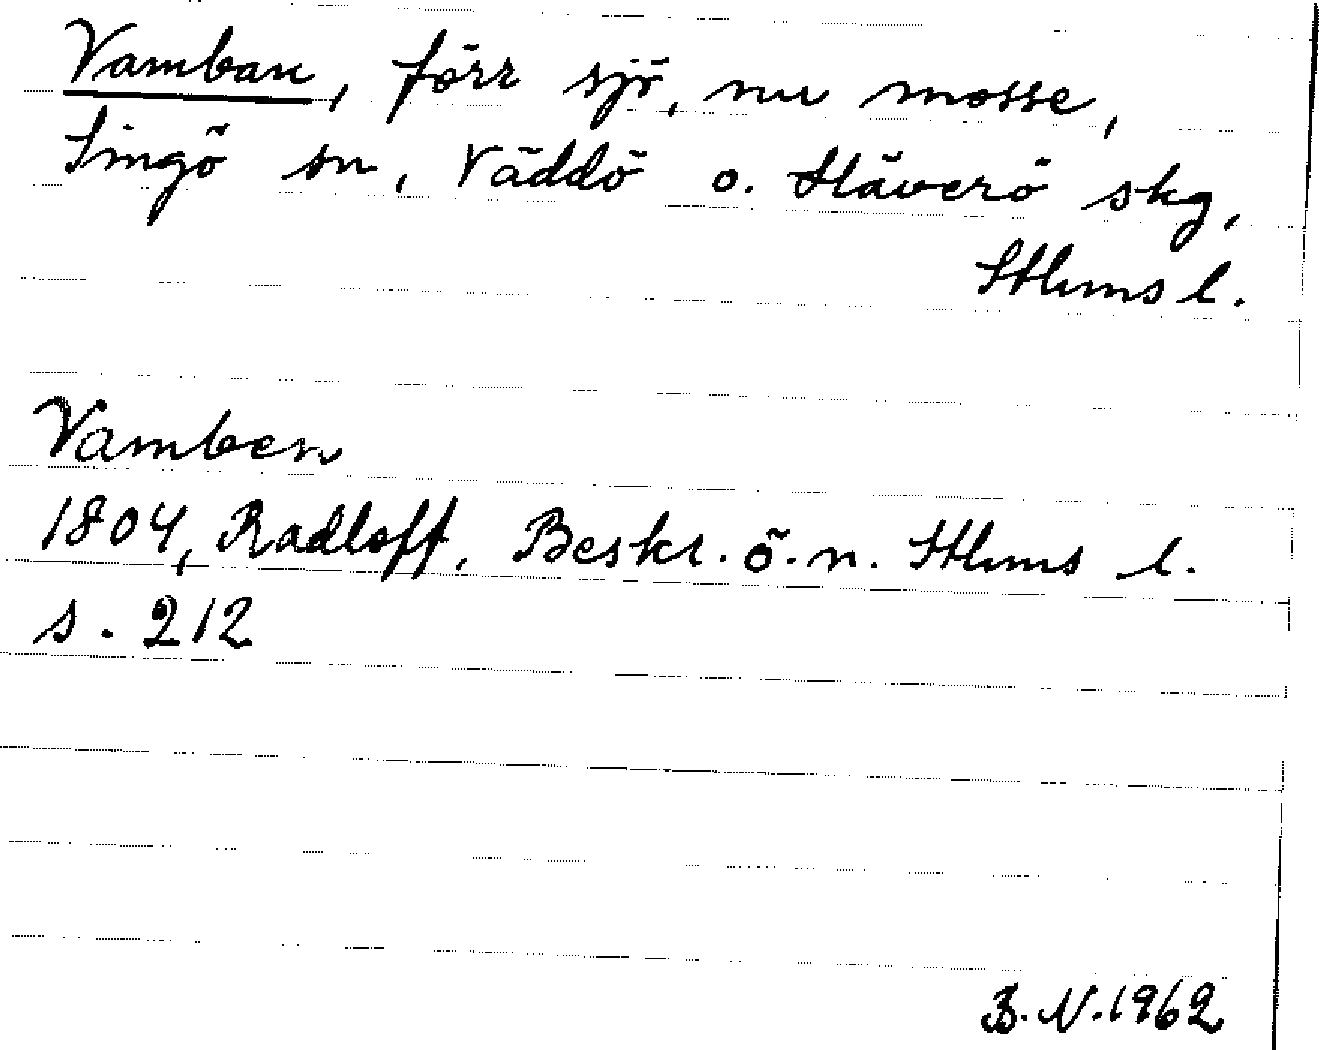 Vamban, förr sjö, nu mosse,
Singö sn, Väddö o. Häverö skg,
Sthms l.
Vamben
1804, Radloff, Beskr. ö. n. Sthms l.
s. 212
B.N.1962